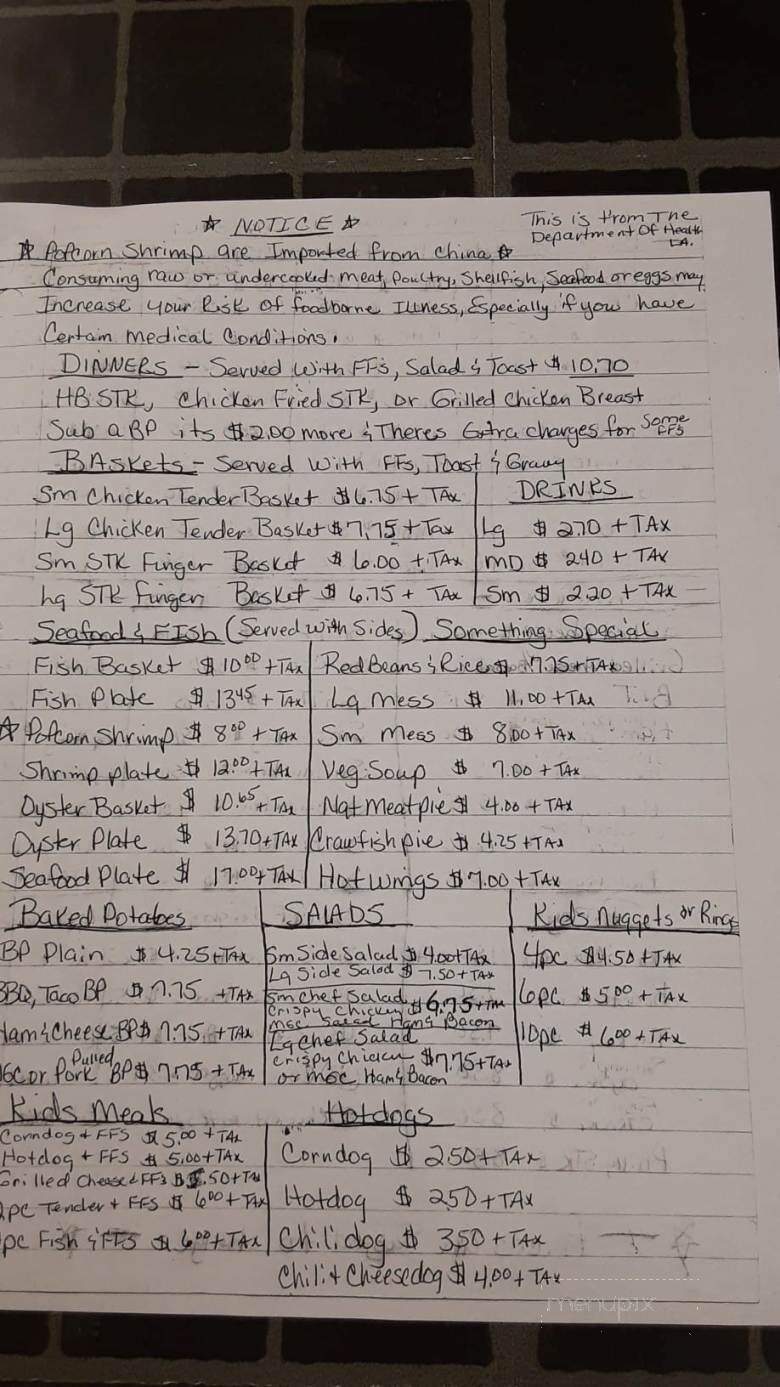 ☆ NOTICE ☆
This is from The
Department Of Health
LA.
☆ Popcorn Shrimp are Imported from China ☆
Consuming raw or undercooked meat, Poultry, Shellfish, Seafood or eggs may
Increase your Risk of foodborne Illness, Especially if you have
Certain Medical Conditions.
DINNERS - Served With FFs, Salad & Toast $ 10.70
HB STK, Chicken Fried STK, or Grilled Chicken Breast
Sub a BP its $2.00 more & Theres Extra charges for Some FFS
BASKETS - Served With FFs, Toast & Gravy
Sm Chicken Tender Basket $6.75 + TAX
Lg Chicken Tender Basket $7.75 + Tax
Sm STK Finger Basket $ 6.00 + TAX
Lg STK Finger Basket $ 6.75 + TAX
DRINKS
Lg $ 2.70 + TAX
MD $ 2.40 + TAX
Sm $ 2.20 + TAX
Seafood & FISh (Served with Sides)
Fish Basket $ 10.00 + TAX
Fish Plate $ 13.45 + TAX
☆ Popcorn Shrimp $ 8.00 + TAX
Shrimp plate $ 12.00 + TAX
Oyster Basket $ 10.65 + TAX
Oyster Plate $ 13.70 + TAX
Seafood Plate $ 17.00 + TAX
Something Special
Red Beans & Rice $ 7.75 + TAX
Lg Mess $ 11.00 + TAX
Sm Mess $ 8.00 + TAX
Veg. Soup $ 7.00 + TAX
Nat Meat pie $ 4.00 + TAX
Crawfish pie $ 4.25 + TAX
Hot wings $ 7.00 + TAX
Baked Potatoes
BP Plain $ 4.25 + TAX
BBQ, Taco BP $ 7.75 + TAX
Ham & Cheese BP $ 7.75 + TAX
or Pulled Pork BP $ 7.75 + TAX
SALADS
Sm Side Salad $ 4.00 + TAX
Lg Side Salad $ 7.50 + TAX
Sm Chef Salad
Crispy Chicken $ 6.75 + TAX
MGC Salad Ham & Bacon
Lg Chef Salad
Crispy Chicken $ 7.75 + TAX
or MGC Ham & Bacon
Kids Nuggets or Rings
4pc $4.50 + TAX
6pc $ 5.00 + TAX
10pc $ 6.00 + TAX
Kids Meals
Corndog + FFS $ 5.00 + TAX
Hotdog + FFS $ 5.00 + TAX
Grilled Cheese & FFs .50 + TAX
pc Tender + FFS $ 6.00 + TAX
pc Fish & FFS $ 6.00 + TAX
Hotdogs
Corndog $ 2.50 + TAX
Hotdog $ 2.50 + TAX
Chili dog $ 3.50 + TAX
Chili & Cheesedog $ 4.00 + TAX
menupix